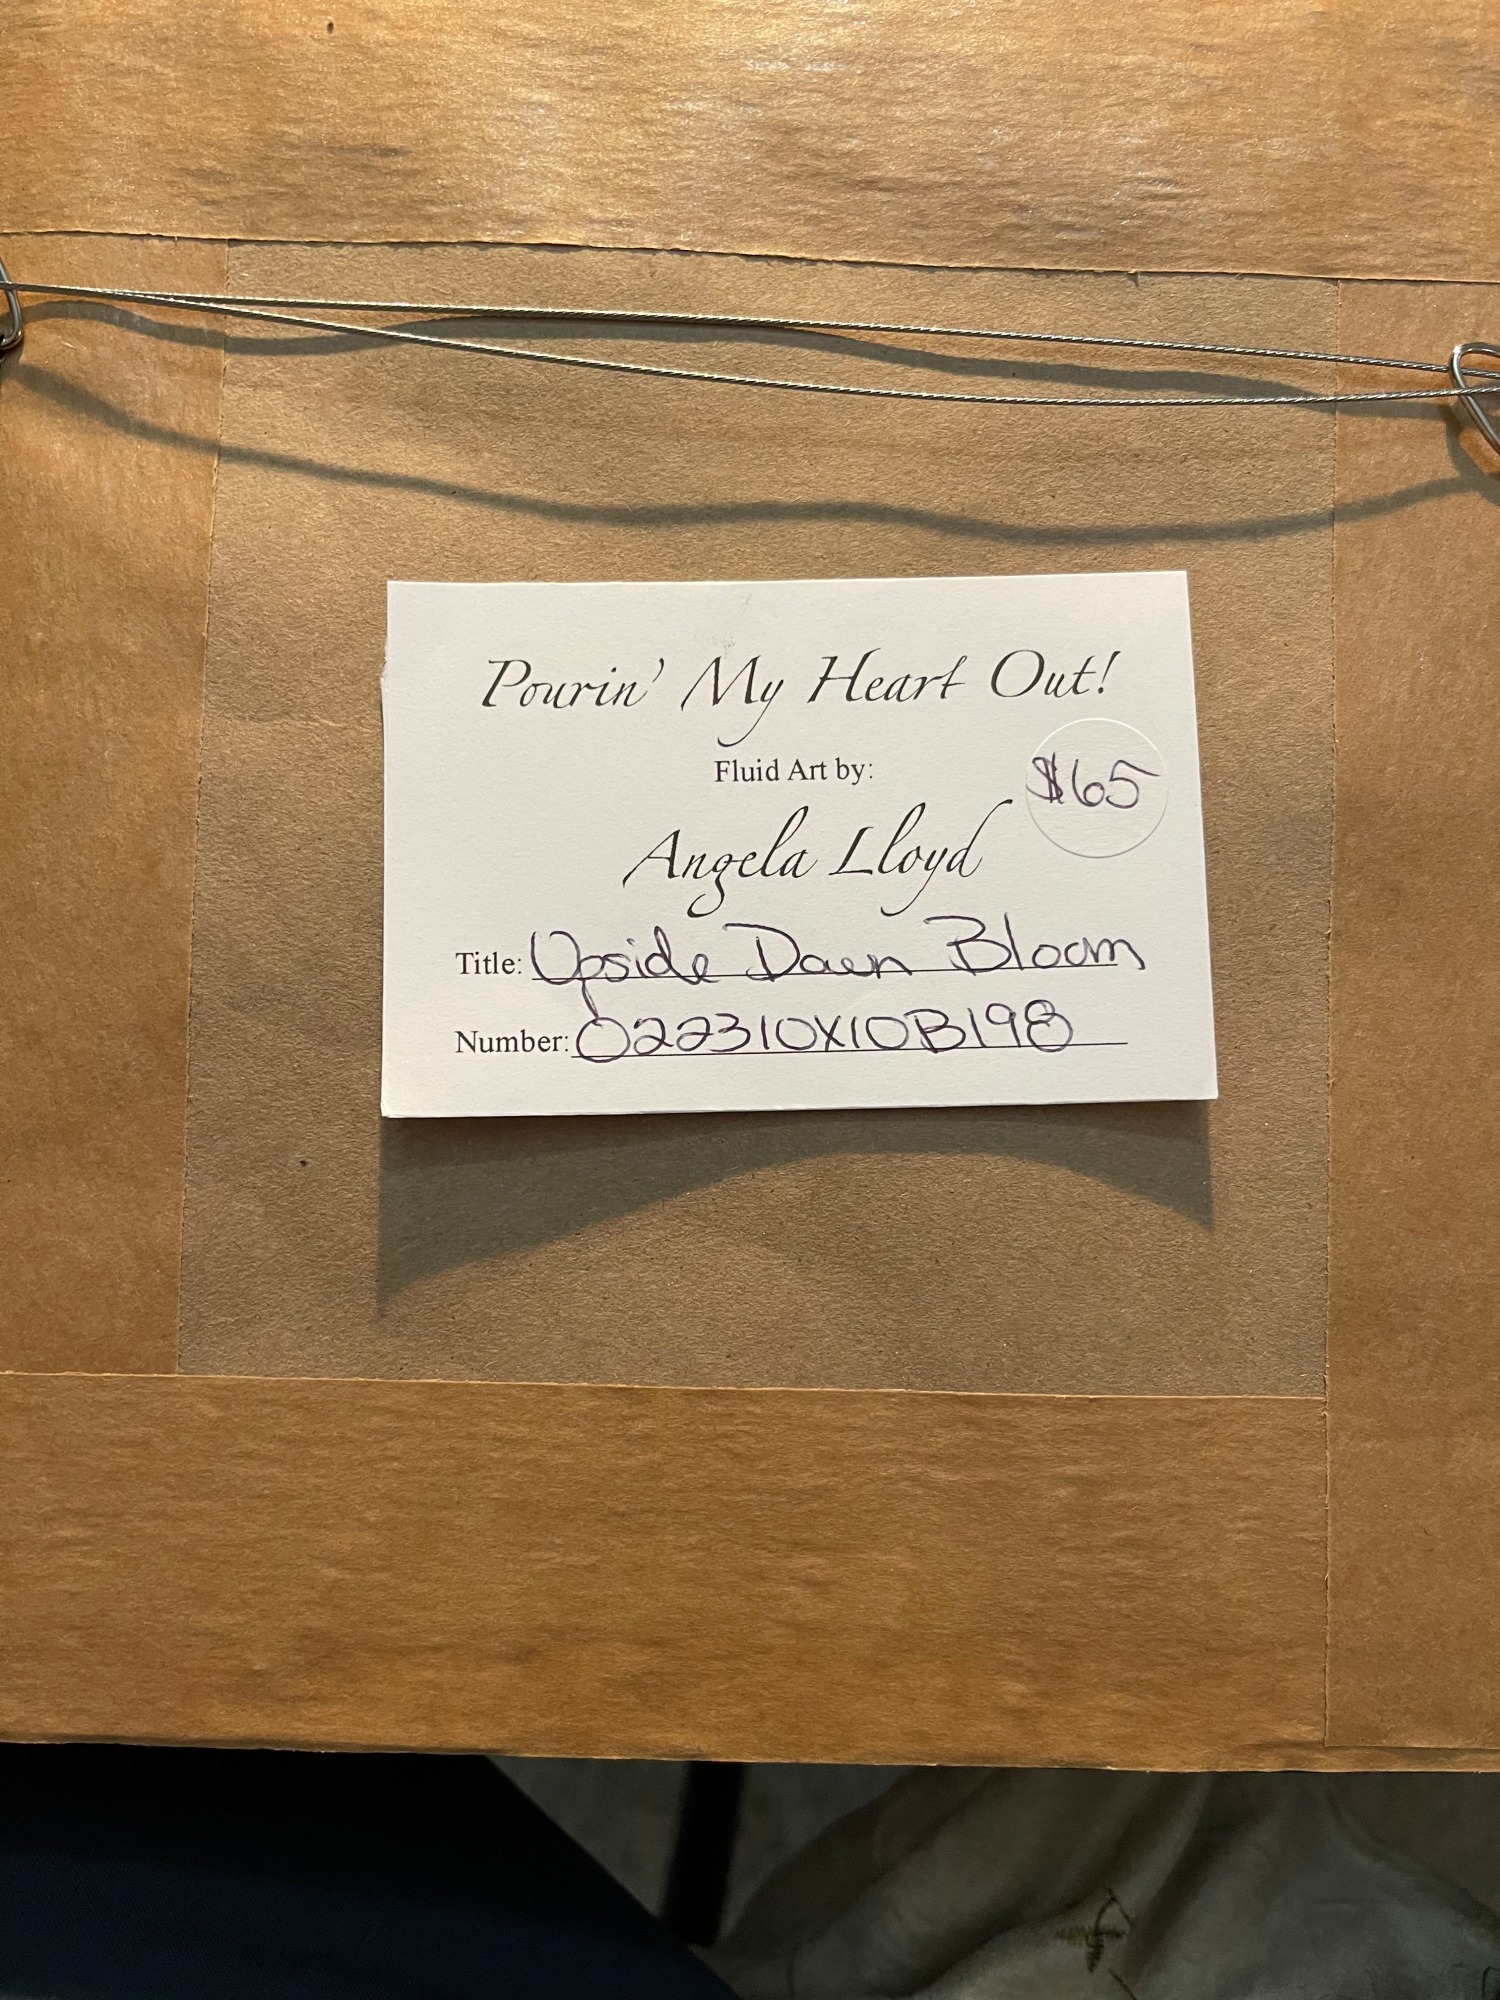 Pourin' My Heart Out!
Fluid Art by:
$65
Angela Lloyd
Title: Upside Down Bloom
Number: 022310X10B198